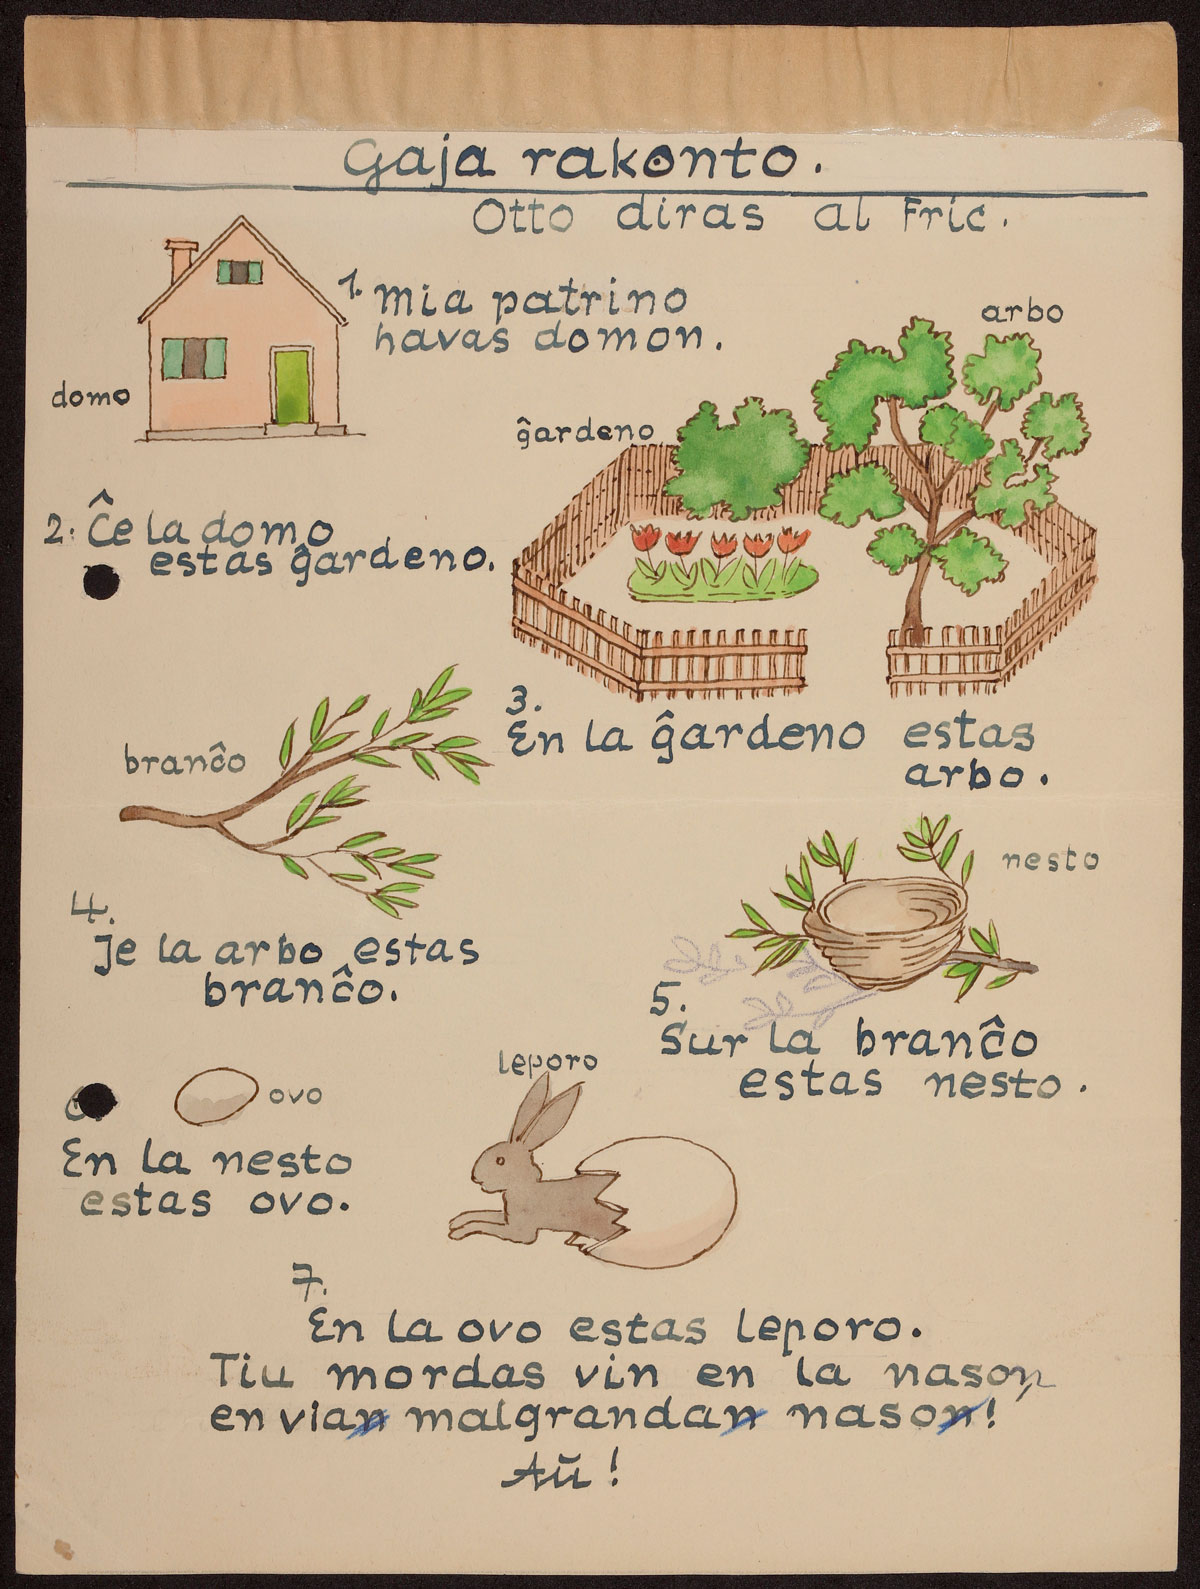 Gaja rakonto.
Otto diras al Fric.
1. Mia patrino
havas domon.
domo
arbo
ĝardeno
2. Ĉe la domo
estas ĝardeno.
3.
En la ĝardeno estas
arbo.
branĉo
4.
Je la arbo estas
branĉo.
nesto
5.
Sur la branĉo
estas nesto.
ovo
En la nesto
estas ovo.
leporo
7.
En la ovo estas leporo.
Tiu mordas vin en la nason
en vian malgrandan nason!
Aŭ!